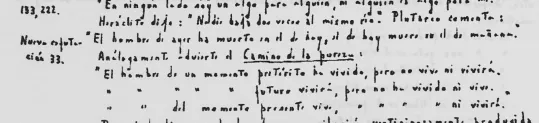 133, 222. "En ningún lado soy un algo para alguien, ni alguien es algo para mí."
Heráclito dijo: "Nadie baja dos veces al mismo río." Plutarco comenta:
Nueva refuta- "El hombre de ayer ha muerto en el de hoy, el de hoy muere en el de mañana."
ción 33. Análogamente advierte el Camino de la pureza:
"El hombre de un momento pretérito ha vivido, pero no vive ni vivirá.
" " " " futuro vivirá, pero no ha vivido ni vive.
" " del momento presente vive, " " " " ni vivirá."